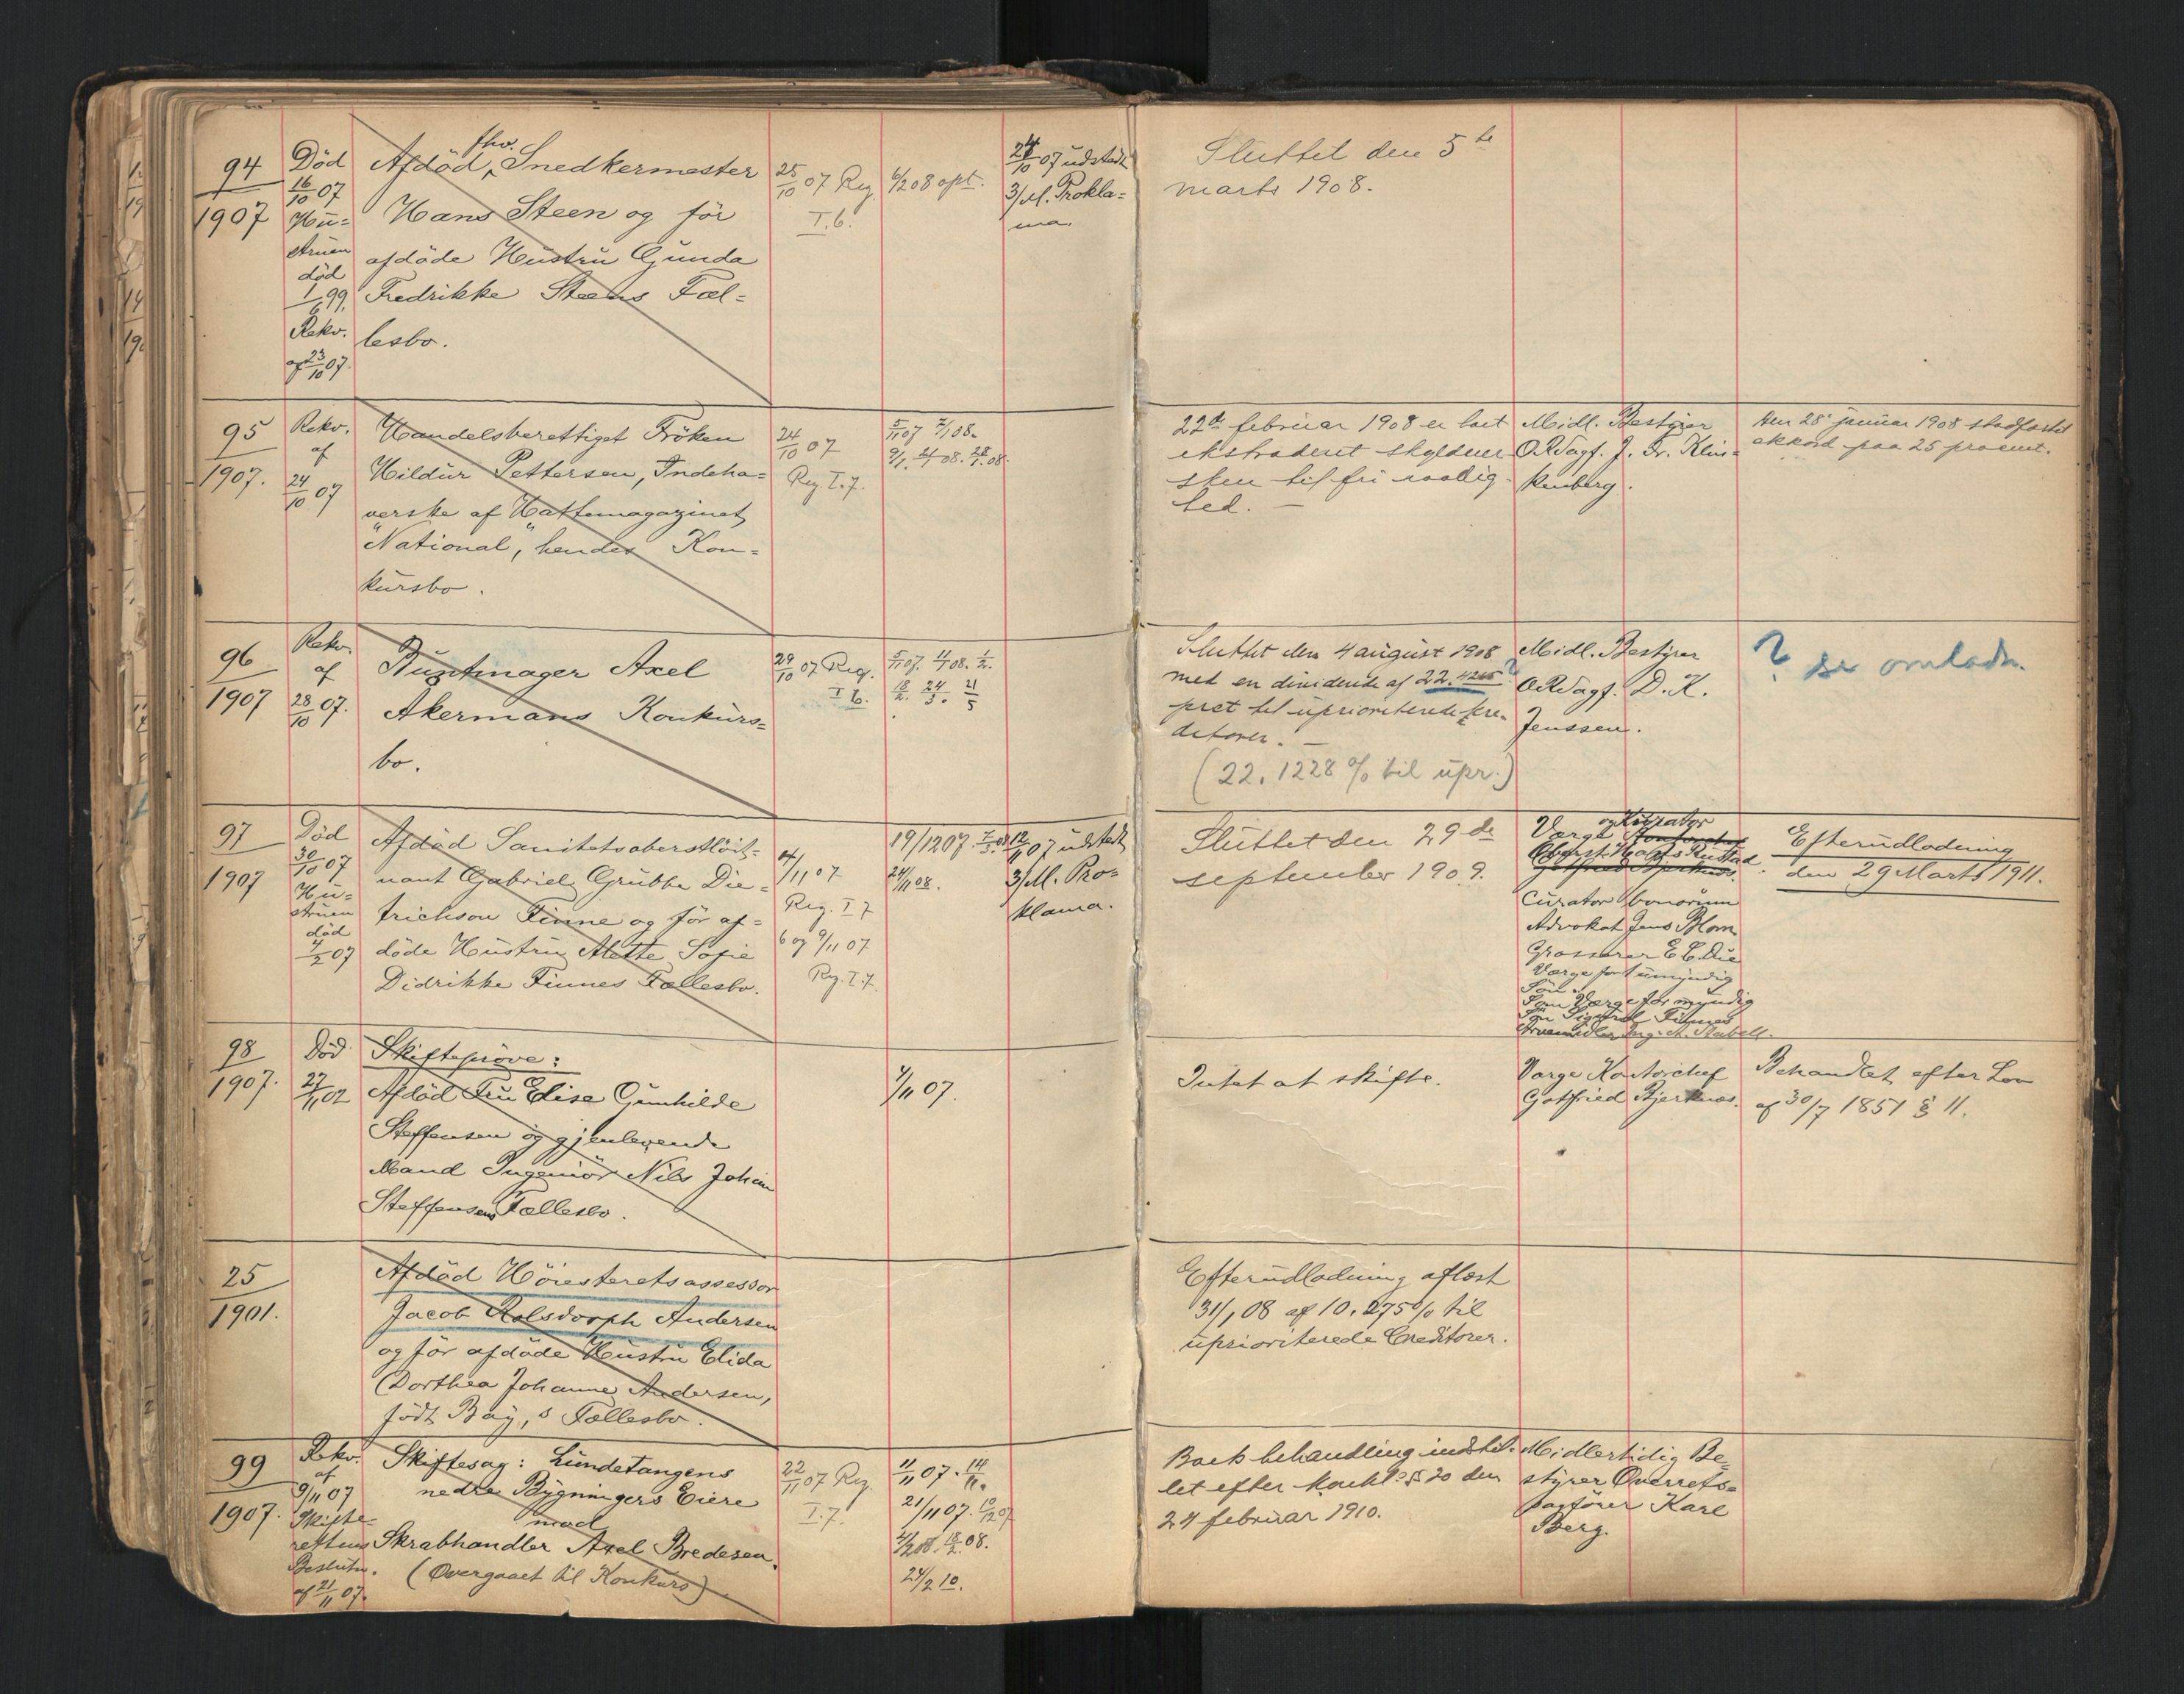 94
1907
Död
16/10 07
Hu-
struen
död
1/6 99.
Rekv.
af 23/10 07.
fhv.
Afdöd, Snedkermester
Hans Steen og för
afdöde Hustru Gunda
Fredrikke Steens Fæl-
lesbo.
25/10 07 Reg.
I. 6.
6/2 08 opt.
24/10 07 udstedt
3/M. Prokla-
ma.
Sluttet den 5te
marts 1908.
95
1907.
Rekv.
af
24/10 07
Handelsberettiget Fröken
Hildur Pettersen, Indeha-
verske af Hattemagazinet
"National", hendes Kon-
kursbo.
24/10 07
Reg. I. 7.
5/11 07 7/1 08.
9/1. 21/1 08. 28/1. 08.
22de februar 1908 er boet
ekstraderet skyldner-
sken til fri raadig-
hed. —
Midl. Bestyrer
ORSagf. J. Fr. Klin-
kenberg.
Den 28' januar 1908 stadfæstet
akkord paa 25 procent.
96
1907
Rekv.
af
28/10 07.
Buntmager Axel
Akermans Konkurs-
bo.
29/10 07 Reg.
I 6.
5/11 07. 11/1 08. 1/2.
18/2. 24/3. 21/5
Sluttet den 4 august 1908
med en dividende af 22.4265 ?
pret til uprioriterede kre-
ditorer. —
(22.1228 % til upr.)
Midl. Bestyrer
ORSagf. D. K.
Jenssen.
? se omladn.
97
1907
Död
30/10 07
Hu-
struen
död
4/2 07
Afdöd Sanitetsoberstlöit-
nant Gabriel Grubbe Die-
trichson Finne og för af-
döde Hustru Alette Sofie
Didrikke Finnes Fællesbo.
4/11 07
Reg. I 7
6 og 9/11 07
Reg. I. 7.
19/12 07. 7/3 08
24/11 08.
12/11 07 udstedt
3/M. Pro-
klama.
Sluttet den 29de
september 1909.
og Kurator
Værge
Gotfried Bjerknæs.
Curator bonorum
Advokat Jens Blom
Grosserer E C Due
Værge for 1 umyndig
Sön.
Som Værge for myndig
Sön Sigurd Finnes
Efterudlodning
den 29 Marts 1911.
98
1907.
Död
27/11 02
Skifteprøve:
Afdöd Fru Elise Gunhilde
Steffensen og gjenlevende
Mand Ingeniör Nils Johan
Steffensens Fællesbo.
7/11 07.
Intet at skifte.
Værge Kontorchef
Gotfried Bjerknæs.
Behandlet efter Lov
af 30/7 1851 § 11.
25
1901.
Afdöd Höiesteretsassessor
Jacob Rolsdorph Andersen
og för afdöde Hustru Elida
Dorthea Johanne Andersen,
födt Bay, s Fællesbo.
Efterudlodning aflæst
31/1 08 af 10.275% til
uprioriterede Creditorer.
99
1907.
Rekv.
af
9/11 07
Skifte-
rettens
Beslutn.
af 21/11 07.
Skiftesag: Lundetangens
nedre Bygningers Eiere
mod
Skrabhandler Axel Bredesen.
(Overgaaet til Konkurs)
22/11 07 Reg.
I. 7.
11/11 07. 14/11.
21/11 07. 10/12 07
4/2 08. 18/2 08.
24/2 10.
Boets behandling indstil-
let efter konkl. § 20 den
24 februar 1910.
Midlertidig Be-
styrer Overrets-
sagförer Karl
Berg.